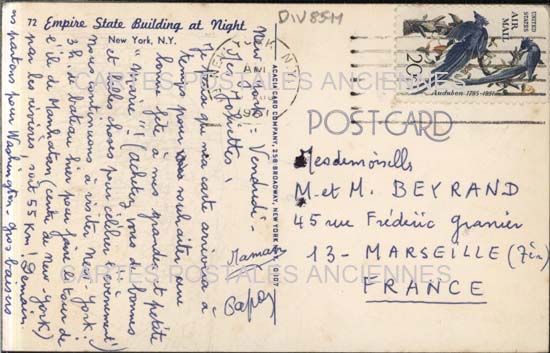 DIV8511
72 Empire State Building at Night
New York, N.Y.
New-York - Vendredi -
Mes Jojottes!
Je pense que ma carte arrivera à
temps pour vous souhaiter une
bonne fête à mes grande et petite
"Marie"!! (achetez vous de bonnes
et belles choses pour célébrer l'évènement)
Nous continuons à visiter New York:
3h de bateau hier pour faire le tour de
l'île de Manhatan (centre de New-York)
par les rivières soit 55 Km! Demain
nous partons pour Washington - Gros baisers
Maman
Papa
ACACIA CARD COMPANY, 258 BROADWAY, NEW YORK
UNITED STATES
AIR MAIL
20c
Audubon-1785-1851
POST-CARD
Mesdemoiselles
M. et M. BEYRAND
45 rue Frédéric Granier
13 - MARSEILLE (7è)
FRANCE
CARTES POSTALES ANCIENNES
CARTES POSTALES ANCIENNES